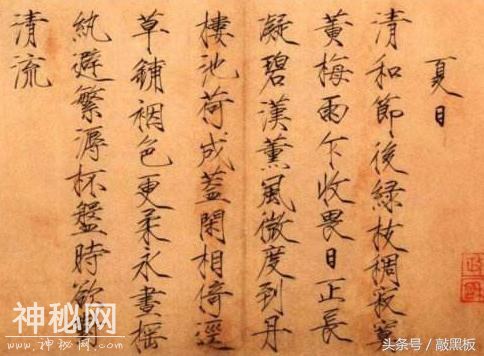 夏日
清和節後緑枝稠寂寞
黄梅雨乍收畏日正長
凝碧漢薫風微度到丹
樓池荷成蓋閑相倚逕
草鋪裀色更柔永晝摇
紈避繁溽杯盤時欲對
清流
政和
神秘网
www.神秘网.com
头条号 / 敲黑板